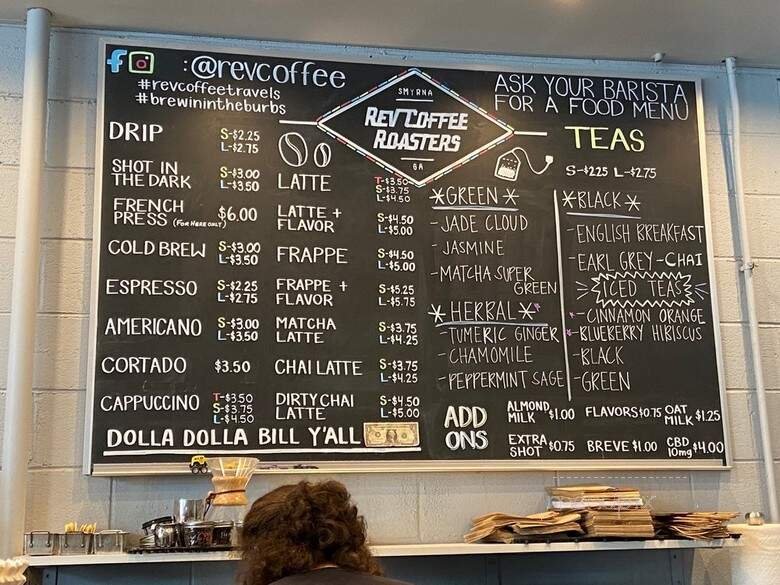 :@revcoffee
#revcoffeetravels
#brewinintheburbs
SMYRNA
REV COFFEE
ROASTERS
GA
ASK YOUR BARISTA
FOR A FOOD MENU
DRIP S-$2.25
L-$2.75
SHOT IN
THE DARK S-$3.00
L-$3.50
FRENCH
PRESS (FOR HERE ONLY) $6.00
COLD BREW S-$3.00
L-$3.50
ESPRESSO S-$2.25
L-$2.75
AMERICANO S-$3.00
L-$3.50
CORTADO $3.50
CAPPUCCINO T-$3.50
S-$3.75
L-$4.50
LATTE T-$3.50
S-$3.75
L-$4.50
LATTE +
FLAVOR S-$4.50
L-$5.00
FRAPPE S-$4.50
L-$5.00
FRAPPE +
FLAVOR S-$5.25
L-$5.75
MATCHA
LATTE S-$3.75
L-$4.25
CHAI LATTE S-$3.75
L-$4.25
DIRTY CHAI
LATTE S-$4.50
L-$5.00
DOLLA DOLLA BILL Y'ALL
TEAS
S-$225 L-$2.75
*GREEN*
- JADE CLOUD
- JASMINE
- MATCHA SUPER
GREEN
*HERBAL*
- TUMERIC GINGER
- CHAMOMILE
- PEPPERMINT SAGE
*BLACK*
- ENGLISH BREAKFAST
- EARL GREY - CHAI
ICED TEAS
- CINNAMON ORANGE
- BLUEBERRY HIBISCUS
- BLACK
- GREEN
ADD
ONS
ALMOND
MILK $1.00 FLAVORS $0.75 OAT
MILK $1.25
EXTRA
SHOT $0.75 BREVE $1.00 CBD
10mg $4.00